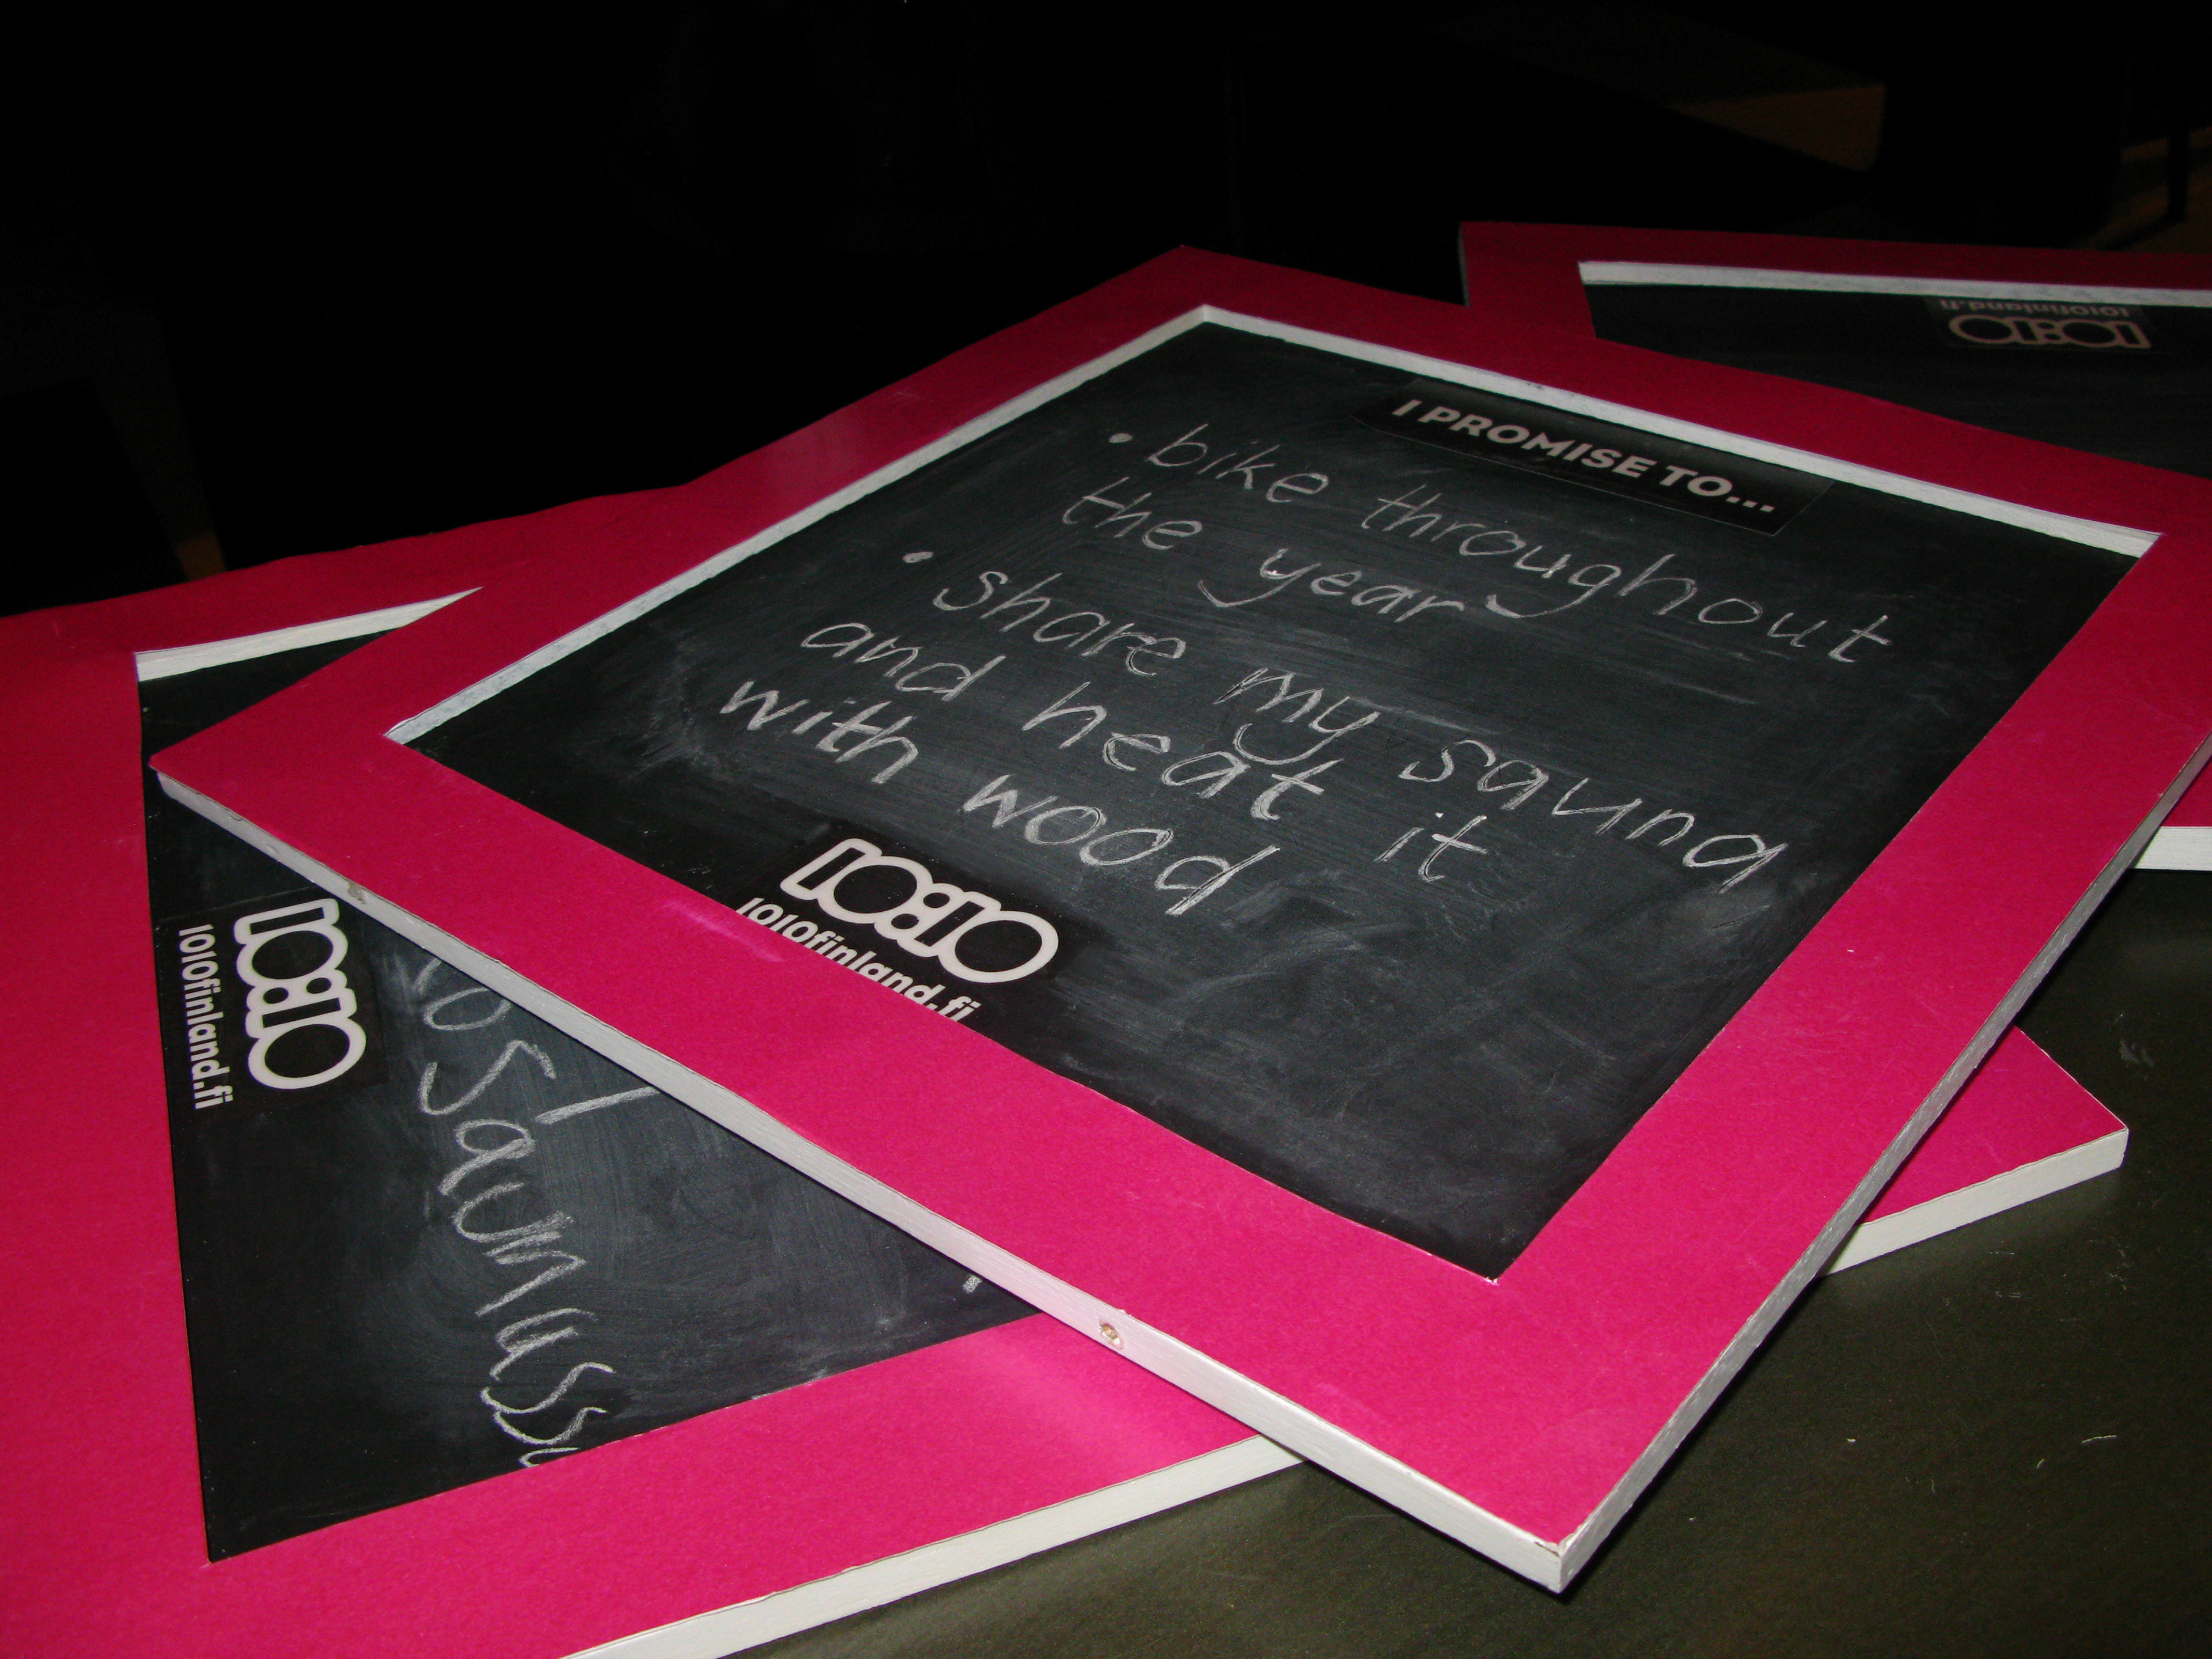 I PROMISE TO...
• bike throughout
the year
• share my sauna
and heat it
with wood
10:10
1010finland.fi
10:10
1010finland.fi
10:10
1010finland.fi